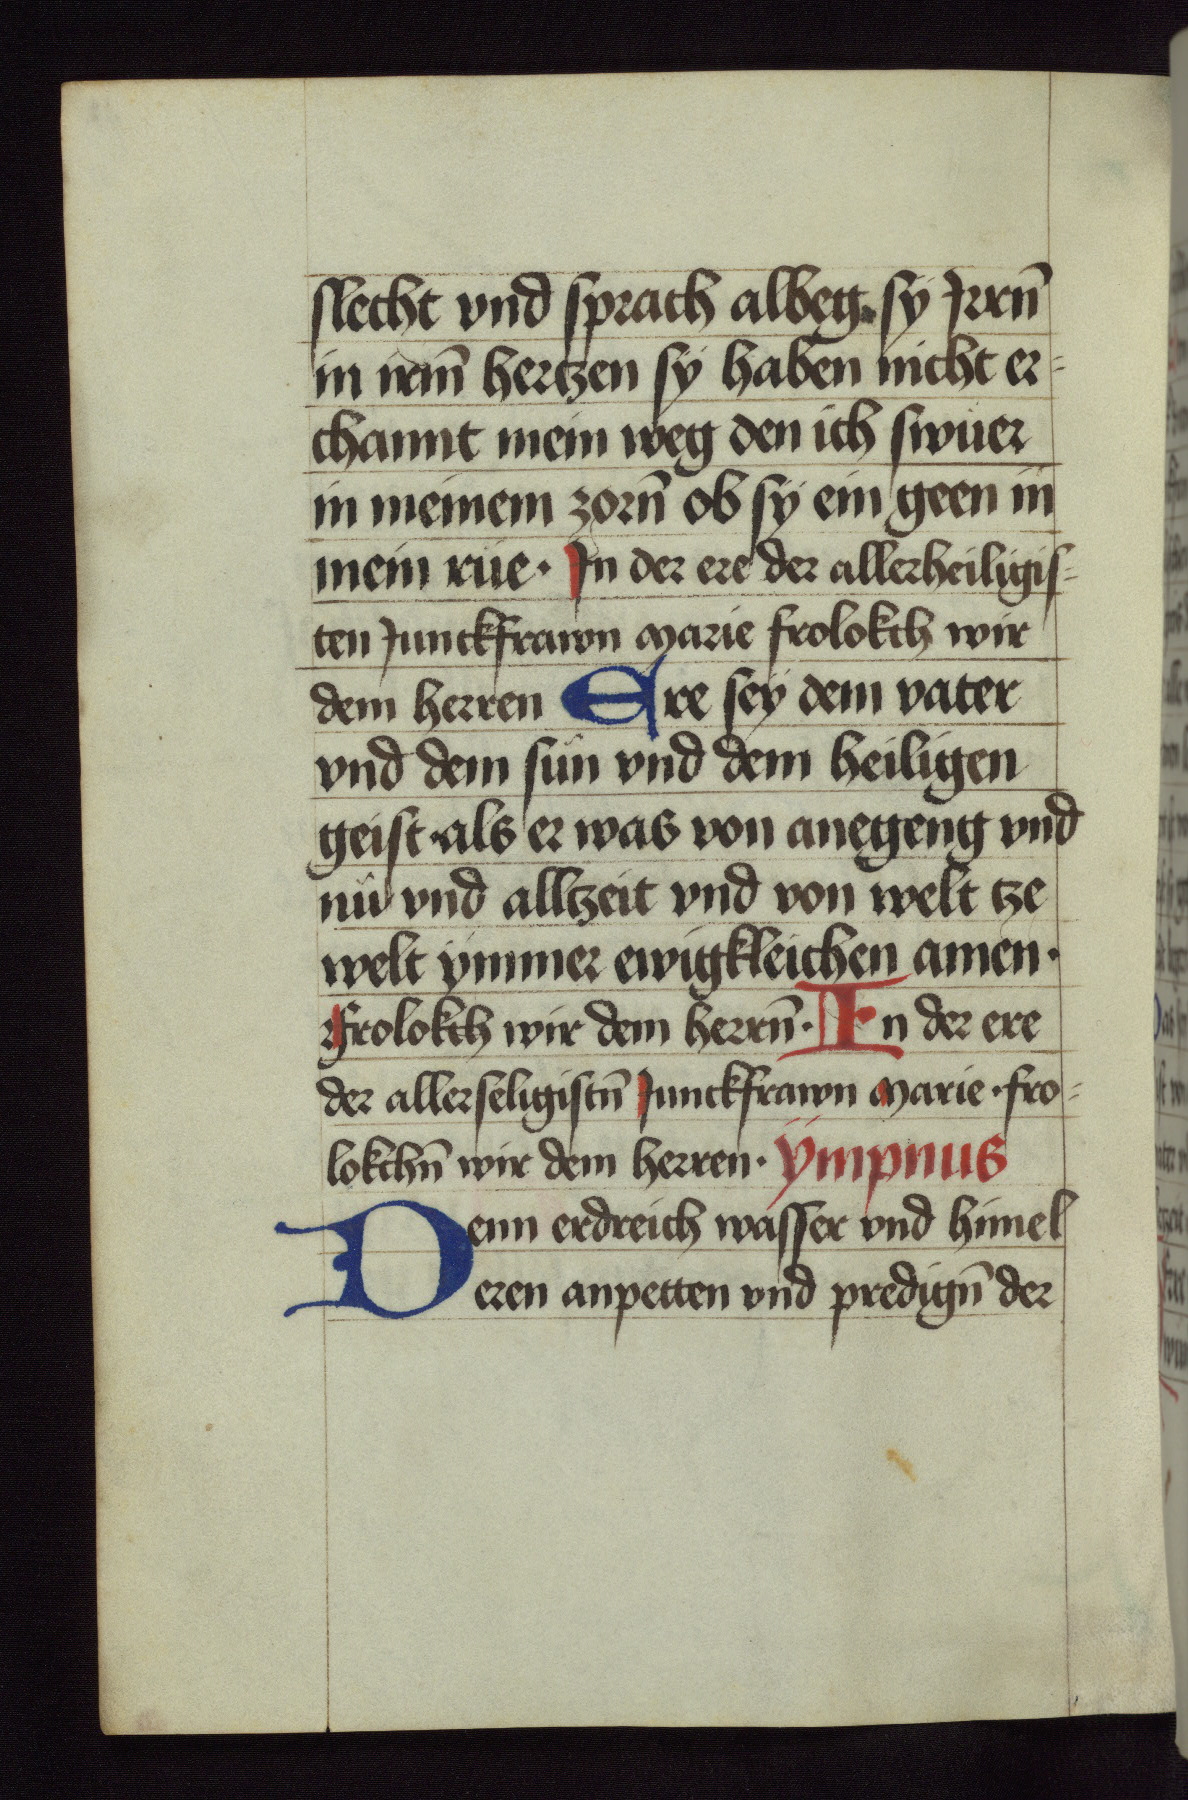 slecht vnd sprach albeg· sy Jrrn̄
in irm̄ hertzen sy haben nicht er-
channt mein weg den ich swüer
in meinem zorn̄ ob sy ein geen in
mein rüe· Jn der ere der allerheiligis-
ten Junckfrawn Marie frolokch wir
dem herren Ere sey dem vater
vnd dem sün vnd dem heiligen
geist·als er was von anegeng vnd
nü vnd alltzeit vnd von welt tze
welt ymmer ewigkleichen amen·
Frolokch wir dem herrn̄· In der ere
der allerseligistn̄ Junckfrawn Marie·fro-
lokchn̄ wir dem herren· ÿmpnus
Denn erdreich wasser vnd himel
eren anpetten vnd predign̄ der